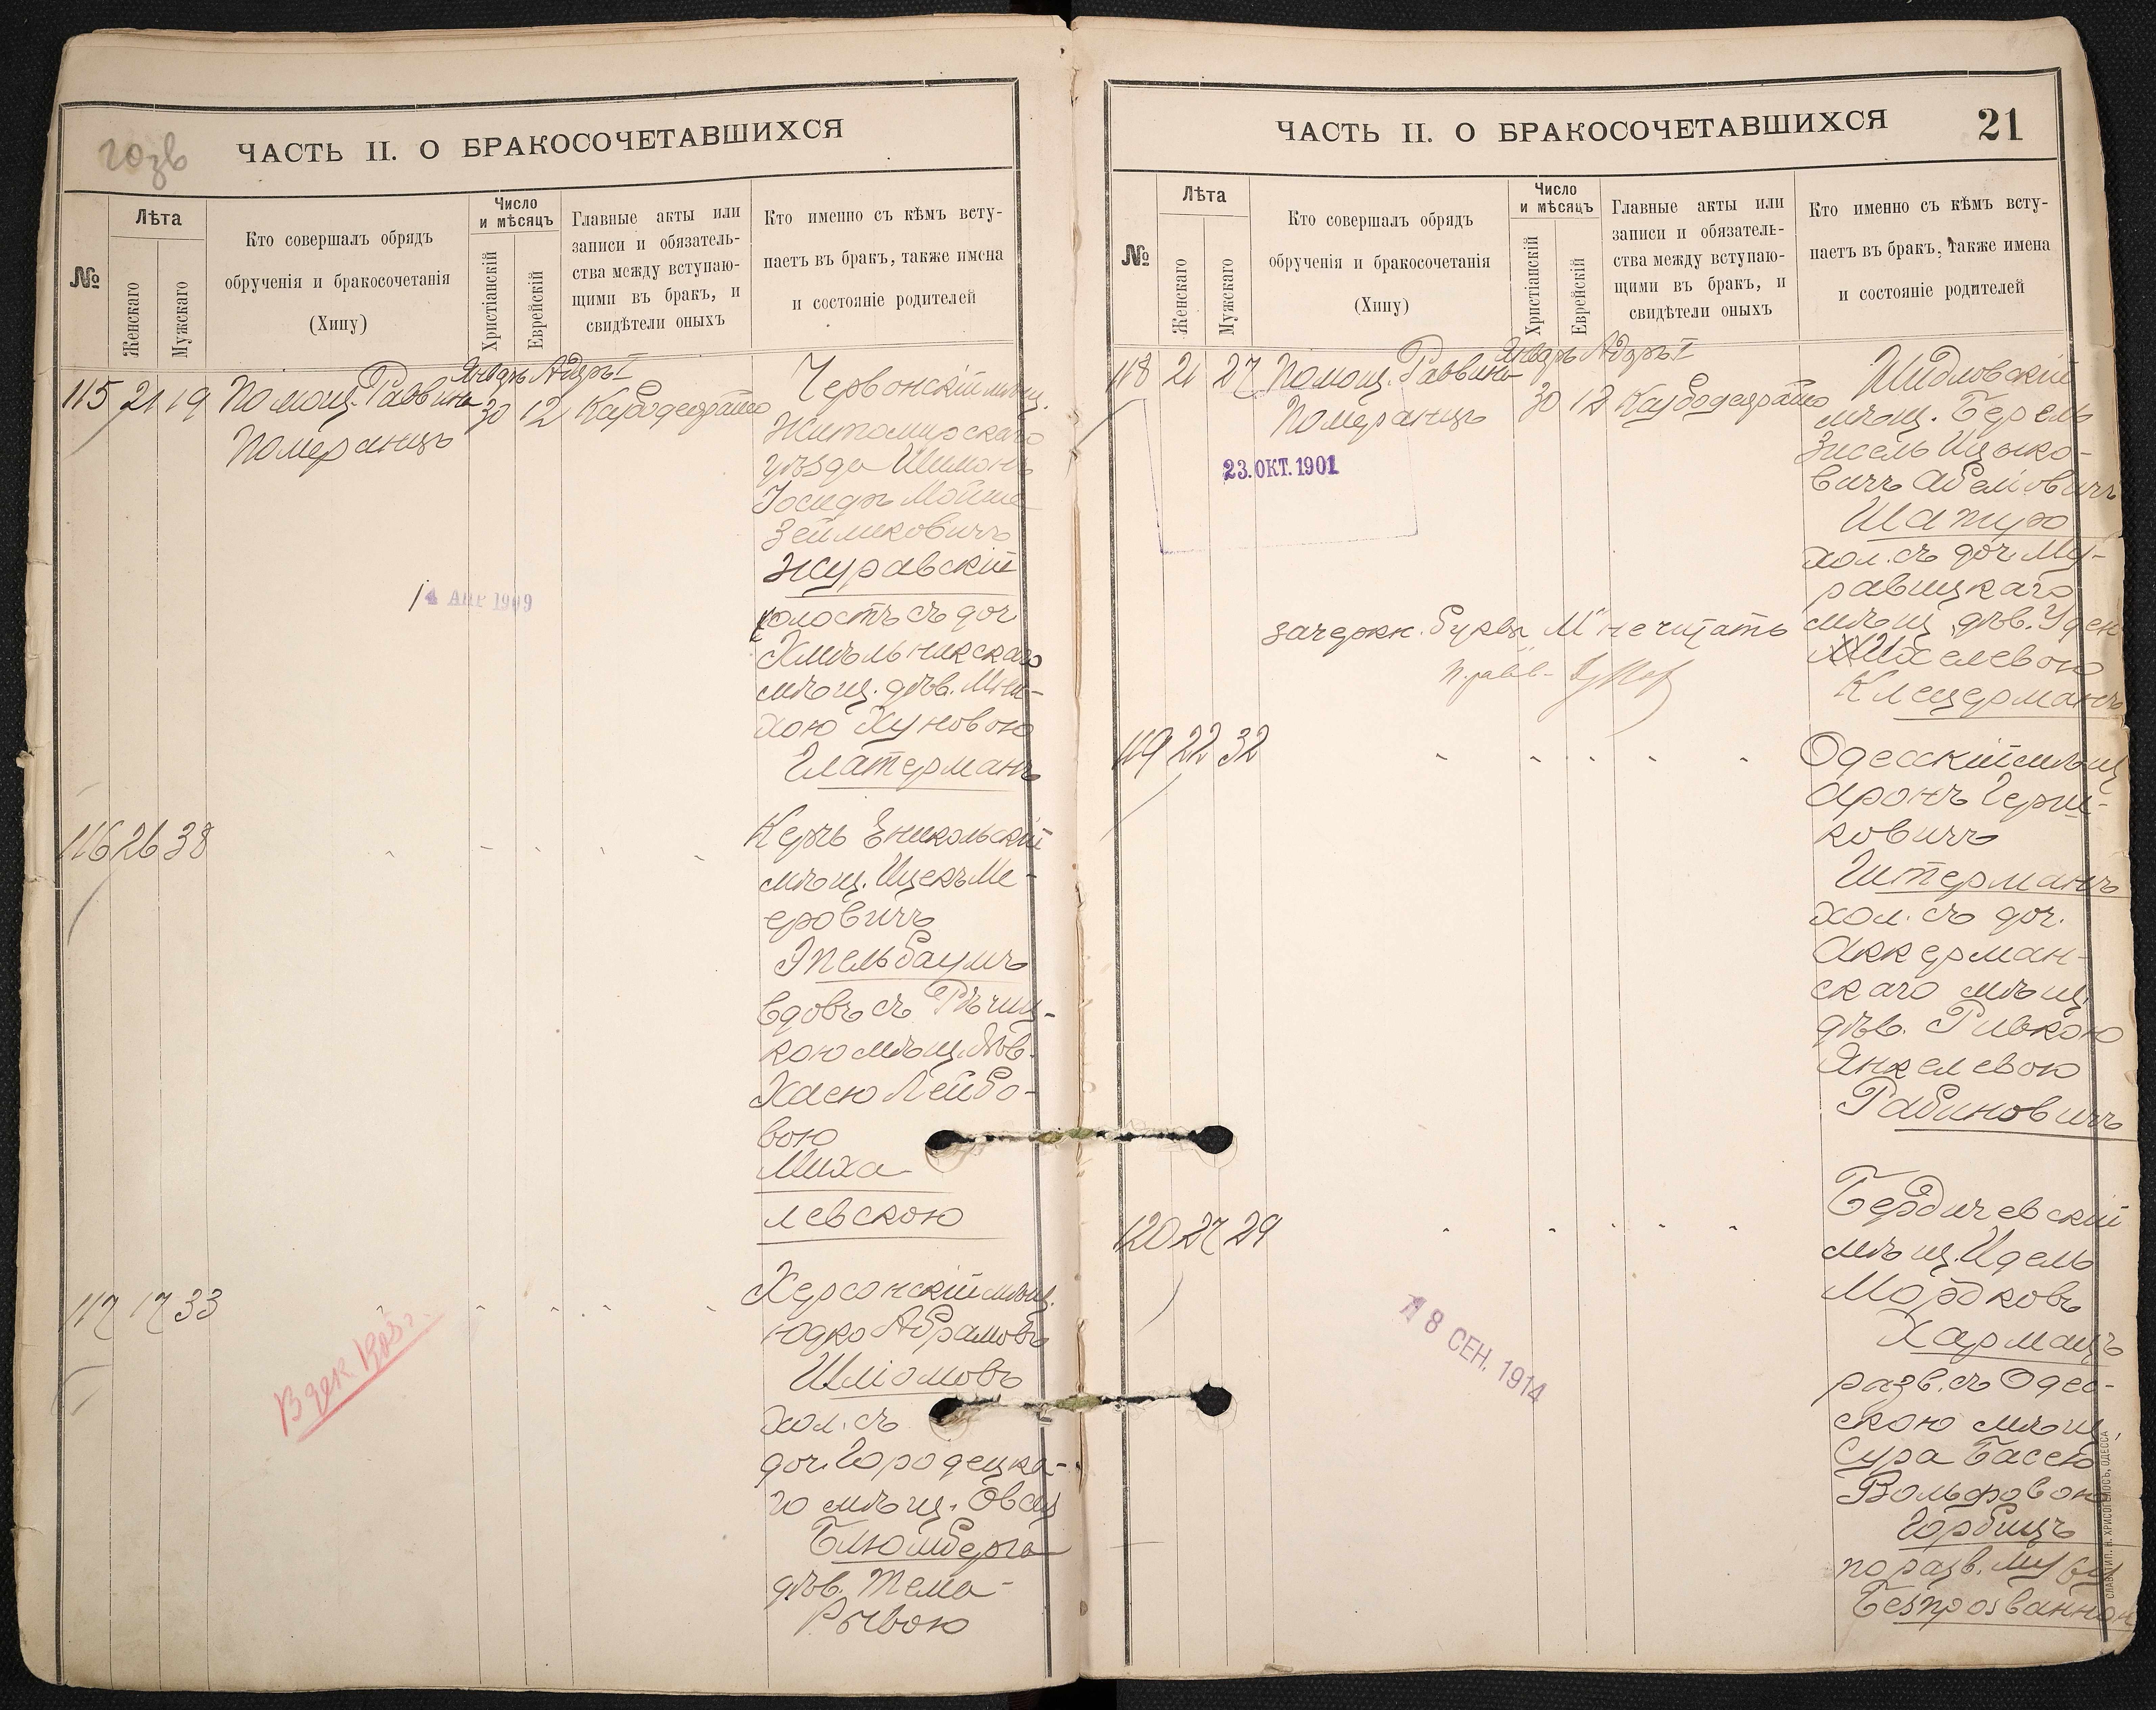 созв
ЧАСТЬ II. О БРАКОСОЧЕТАВШИХСЯ
№
Лѣта
Женскаго
Мужскаго
Кто совершалъ обрядъ
обрученія и бракосочетанія
(Хипу)
Число
и мѣсяцъ
Христіанскій
Еврейскій
Главные акты или
записи и обязатель-
ства между вступаю-
щими въ бракъ, и
свидѣтели оныхъ
Кто именно съ кѣмъ всту-
паетъ въ бракъ, также имена
и состояніе родителей
Январь Адаръ I
115 21 19 Помощ. Раввина 30 12
Померанцъ
Червонскій мѣщ.
Житомирскаго
уѣзда Шимонъ
Іосифъ Мойше
Зейликовичъ
Журавскій
холостъ съ доч
Хмѣльникскаго
мѣщ. дѣв. Мни-
хою Хуновою
Глатерманъ
14 АПР 1909
116 26 38
Керчь Еникольскій
мѣщ. Ицекъ Ме-
еровичъ
Эпельбаумъ
вдовъ съ Рѣчиц-
кою мѣщ. дѣв.
Хаею Лейбо-
вою
Миха
левскою
117 17 33
Херсонскій мѣщ.
Юдко Абрамовъ
Шліомовъ
хол. съ
доч. Городецка-
го мѣщ. Овсій
Блюмберга
дѣв. Тема-
Рывою
В дек. 1903 г.
ЧАСТЬ II. О БРАКОСОЧЕТАВШИХСЯ
21
№
Лѣта
Женскаго
Мужскаго
Кто совершалъ обрядъ
обрученія и бракосочетанія
(Хипу)
Число
и мѣсяцъ
Христіанскій
Еврейскій
Главные акты или
записи и обязатель-
ства между вступаю-
щими въ бракъ, и
свидѣтели оныхъ
Кто именно съ кѣмъ всту-
паетъ въ бракъ, также имена
и состояніе родителей
Январь Адаръ I
118 21 27 Помощ. Раввина 30 12
Померанцъ
23. ОКТ. 1901
Шидловскій
мѣщ. Берель
Зисель Ицко-
вичъ Абелiовичъ
Шатухо
хол. съ доч. Му-
равицкаго
мѣщ. дѣв. Уден
Михелевою
Клецерманъ
зачеркн. буква "М" не читать
п. равв.
119 22 32
Одесскій мѣщ
Аронъ Герш-
ковичъ
Штерманъ
хол. съ доч.
Аккерман-
скаго мѣщ.
дѣв. Ривкою
Янкелевою
Рабиновичъ
120 27 29
Бердичевскій
мѣщ. Идель
Мордковъ
Хармацъ
разв. съ Одес-
скою мѣщ.
Сура Басею
Вольфовою
Горбицъ
по разв. мужу
Безпрозванной
18 СЕН. 1914
СЛАВ. ТИП. Н. ХРИСОГЕЛОСЪ, ОДЕССА